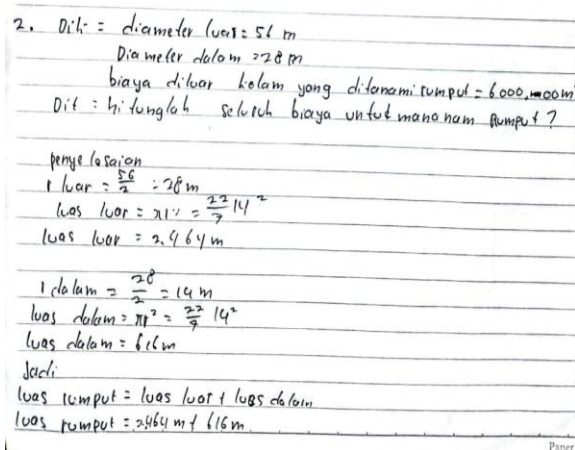 2. Dik = diameter luar = 56 m
Diameter dalam = 28 m
biaya diluar kolam yong ditanami rumput = 6.000,00 m
Dit = hitunglah seluruh biaya untuk mananam Rumput ?
penyelasaian
r luar = 56/2 = 28 m
luas luar = πr² = 22/7 14²
luas luar = 2.464 m
r dalam = 28/2 = 14 m
luas dalam = πr² = 22/7 14²
luas dalam = 616 m
Jadi
luas rumput = luas luar + luas dalam
luas rumput = 2464 m + 616 m
Paper